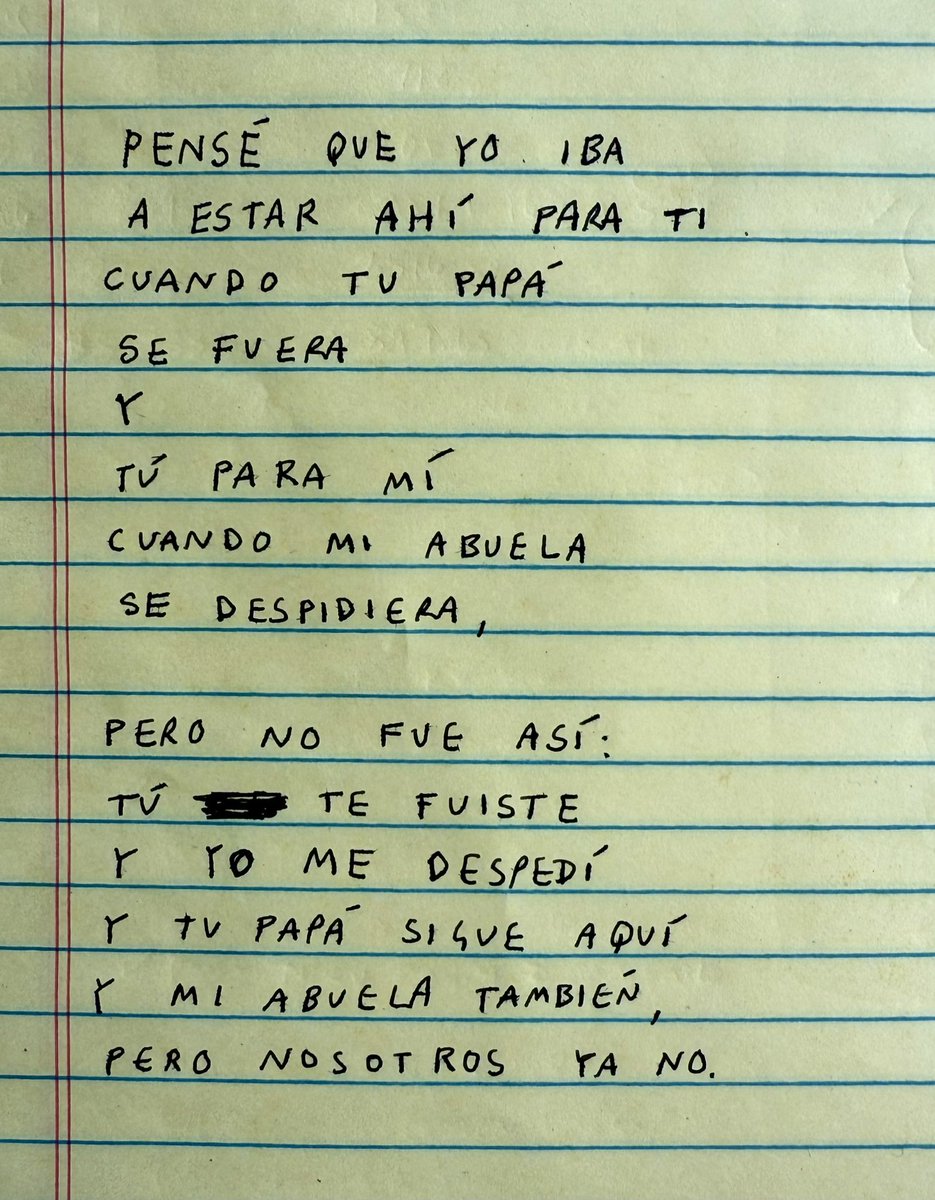 PENSÉ QUE YO IBA
A ESTAR AHÍ PARA TI
CUANDO TU PAPÁ
SE FUERA
Y
TÚ PARA MÍ
CUANDO MI ABUELA
SE DESPIDIERA,
PERO NO FUE ASÍ:
TÚ TE FUISTE
Y YO ME DESPEDÍ
Y TU PAPÁ SIGUE AQUÍ
Y MI ABUELA TAMBIÉN,
PERO NOSOTROS YA NO.